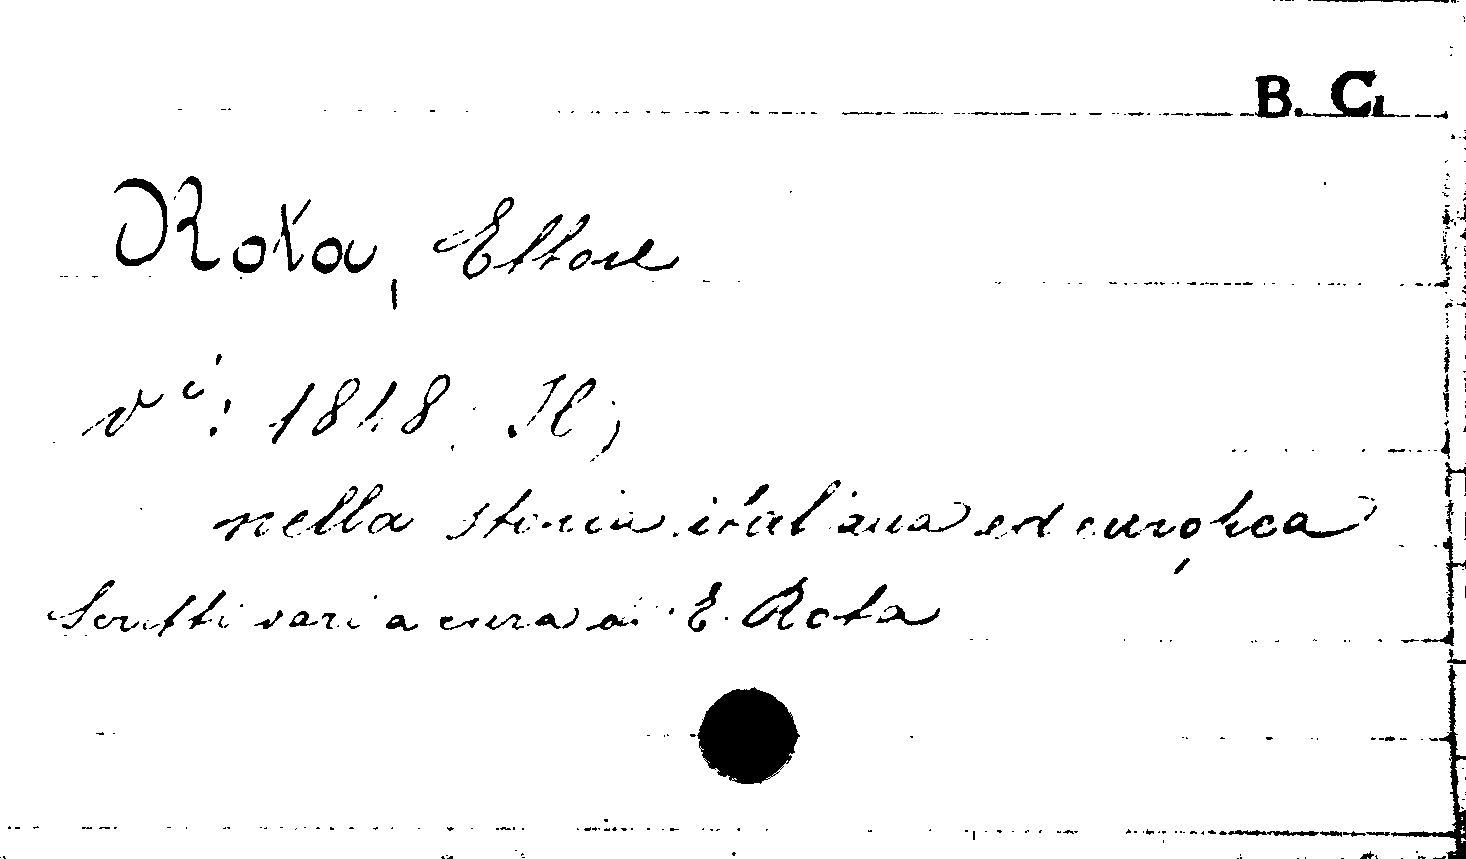 B. C.
Rota, Ettore
vi: 1848. Il,
nella storia italiana ed europea
Scritti vari a cura di E. Rota